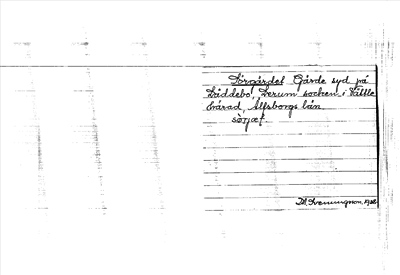 Sörgärdet Gärde syd på
Räddebo, Lerum socken i Vättle
härad, Älfsborgs län
sörjæf.
D. Svenungsson, 1928